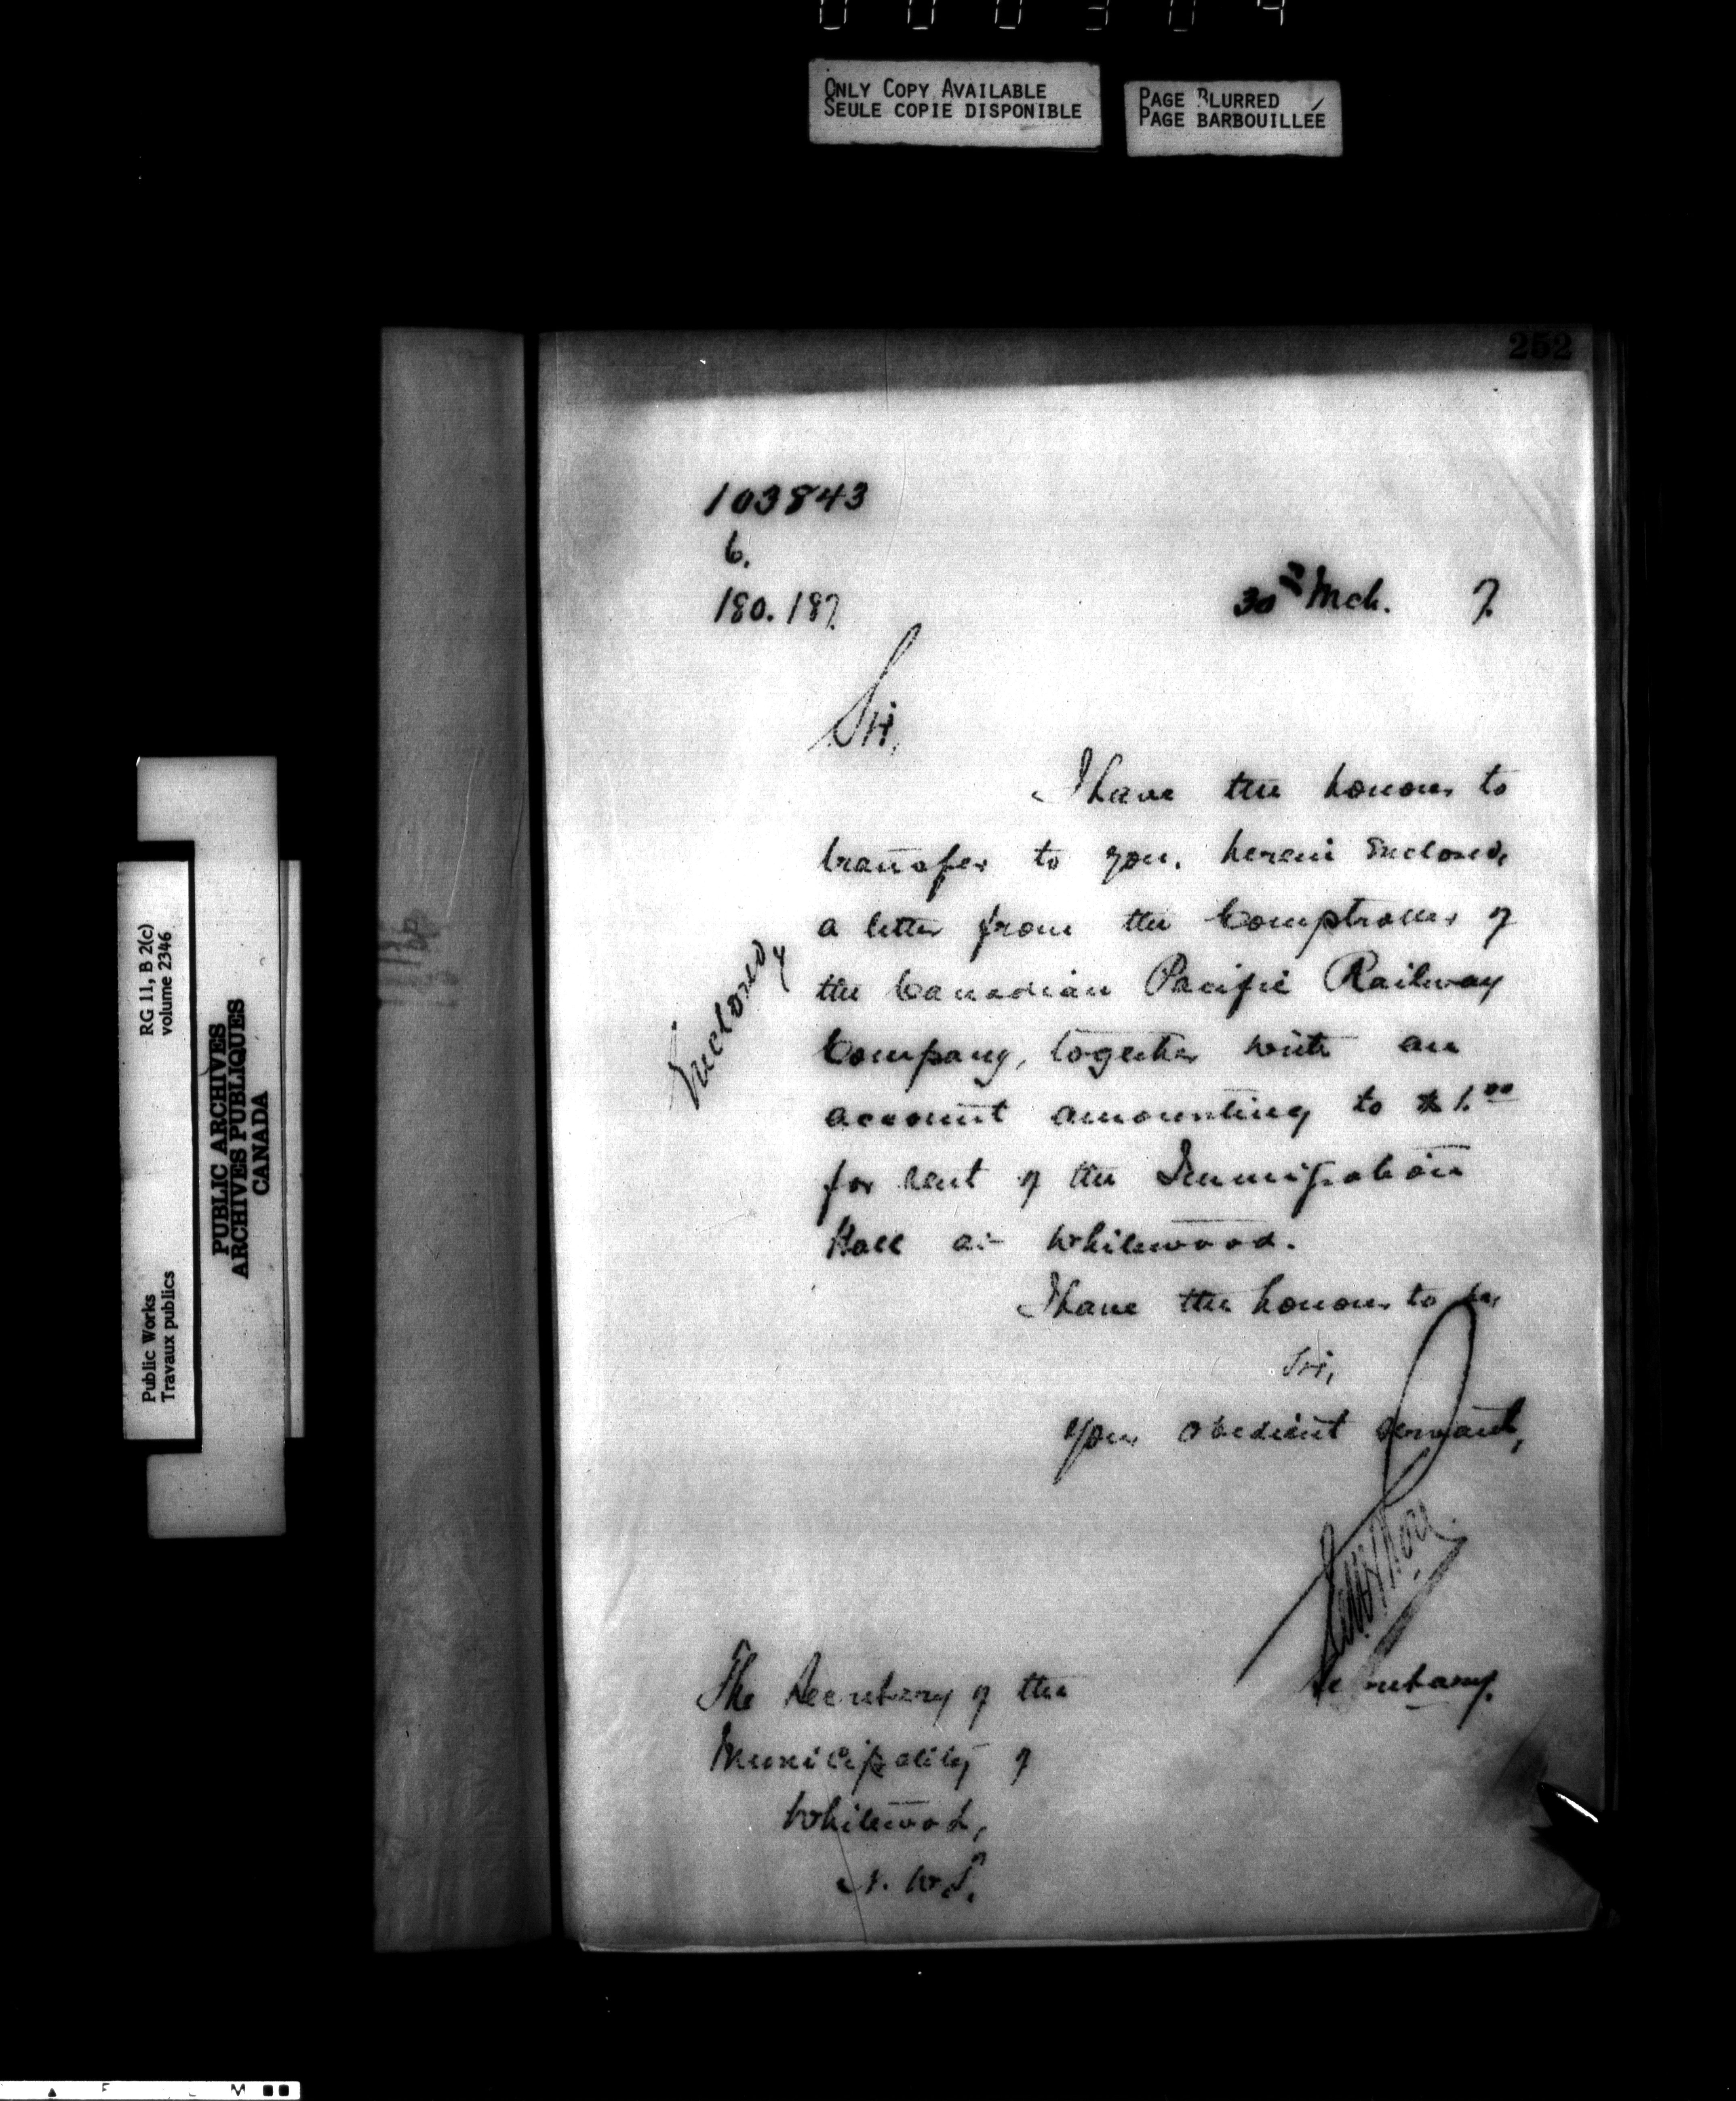 ONLY COPY AVAILABLE
SEULE COPIE DISPONIBLE
PAGE BLURRED
PAGE BARBOUILLÉE
252
103843
6.
180.187.
30th Mch. 7.
Sir,
I have the honour to
transfer to you, herein enclosed,
a letter from the Comptroller of
the Canadian Pacific Railway
Company, together with an
account amounting to $1.00
for rent of the Immigration
Hall at Whitewood.
Enclosed
I have the honour to be,
Sir,
Your obedient servant,
Secretary.
The Secretary of the
Municipality of
Whitewood,
N.W.T.
RG 11, B 2(c)
volume 2346
PUBLIC ARCHIVES
ARCHIVES PUBLIQUES
CANADA
Public Works
Travaux publics